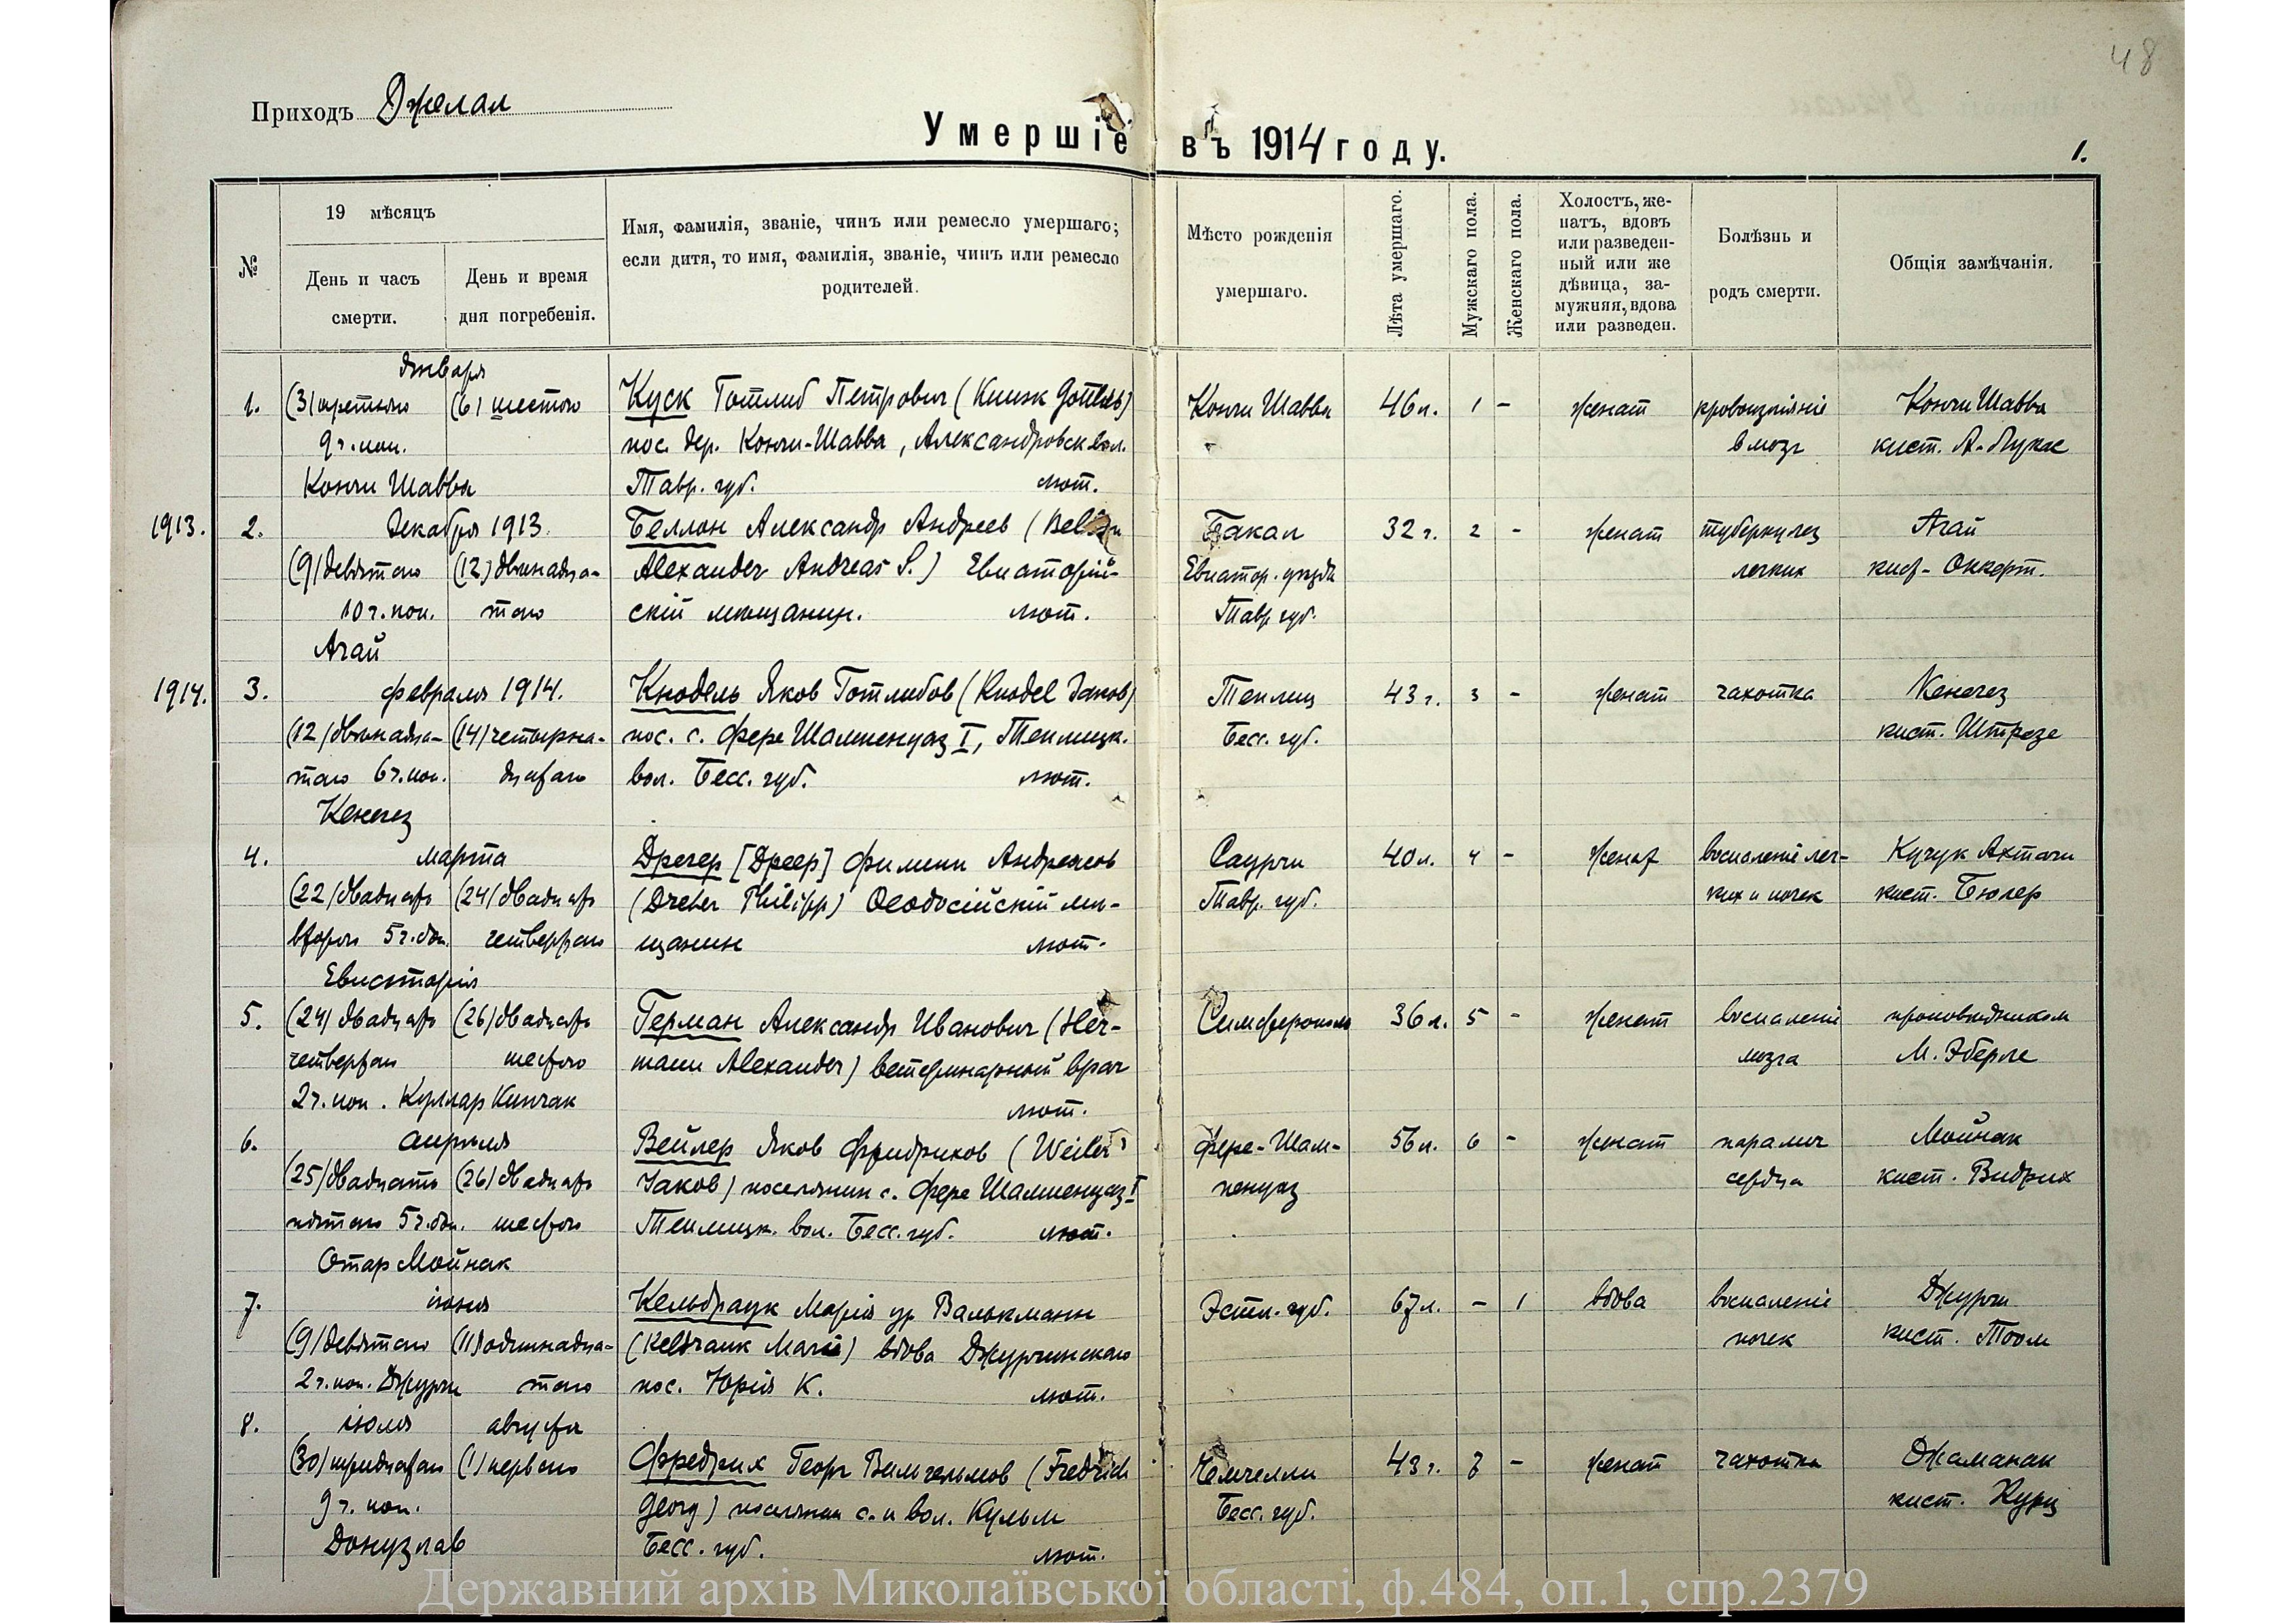 48
Приходъ Джелал
Умершіе въ 1914 году.
1.
№
19 мѣсяцъ
День и часъ смерти.
День и время дня погребенія.
Имя, фамилія, званіе, чинъ или ремесло умершаго;
если дитя, то имя, фамилія, званіе, чинъ или ремесло
родителей.
Мѣсто рожденія
умершаго.
Лѣта умершаго.
Мужскаго пола.
Женскаго пола.
Холостъ, же-
натъ, вдовъ
или разведен-
ный или же
дѣвица, за-
мужняя, вдова
или разведен.
Болѣзнь и
родъ смерти.
Общія замѣчанія.
Января
1. (3) третьяго (6) шестого Куск Готлиб Петрович (Kuusk Gottlieb) Кончи Шавва 46 л. 1 – женат кровоизліяніе Кончи Шавва
9 ч. поп. пос. дер. Кончи-Шавва, Александровск вол. в мозг кист. А. Лукас
Кончи Шавва Тавр. губ. лют.
1913. 2. Декабря 1913. Беллон Александр Андреев (Bellon Бакал 32 г. 2 – женат туберкулез Агай
(9) девятаго (12) двѣнадца- Alexander Andreas S.) Евпаторій- Евпатор. уѣзда легких кист. Оккерт.
10 ч. поп. таго скій мѣщанин. лют. Тавр. губ.
Агай
1914. 3. февраля 1914. Кнодель Яков Готлибов (Knodel Jakob) Теплиц 43 г. 3 – женат чахотка Кенегез
(12) двѣнадца- (14) четырна- пос. с. Фере Шампенуаз I, Теплицк. Бесс. губ. кист. Штрезе
таго 6 ч. поп. дцатаго вол. Бесс. губ. лют.
Кенегез
4. марта Дрегер [Дреер] Филипп Андреасов Саурчи 40 л. 4 – женат воспаленіе лег- Кучук Ахтачи
(22) двадцать (24) двадцать (Dreher Philipp) Ѳеодосійскій мѣ- Тавр. губ. ких и почек кист. Бюлер
второго 5 ч. поп. четвертаго щанин лют.
Евпаторія
5. (24) двадцать (26) двадцать Герман Александр Иванович (Her- Симферополь 36 л. 5 – женат воспаленіе проповѣдником
четвертаго шестого mann Alexander) ветеринарный врач мозга М. Эберле
2 ч. поп. Куллар Кипчак лют.
6. апрѣля Вейлер Яков Фридрихов (Weiler Фере-Шам- 56 л. 6 – женат паралич Мойнак
(25) двадцать (26) двадцать Jakob) поселянин с. Фере Шампенуаз I пенуаз сердца кист. Видрих
пятаго 5 ч. поп. шестого Теплицк. вол. Бесс. губ. лют.
Отар Мойнак
7. іюня Кельдраук Марія ур. Валькманн Эстл. губ. 67 л. – 1 вдова воспаленіе Джурчи
(9) девятаго (11) одиннадца- (Keldrauk Marie) вдова Джурчинскаго почек кист. Тоом
2 ч. поп. Джурчи таго пос. Юрія К. лют.
8. іюля августа
(30) тридцатаго (1) перваго Фредрих Георг Вильгельмов (Fredrich Чемчелли 43 г. 7 – женат чахотка Джаманак
9 ч. поп. Georg) поселянин с. и вол. Кульм Бесс. губ. кист. Курц
Донузлав Бесс. губ. лют.
Державний архів Миколаївської області, ф.484, оп.1, спр.2379